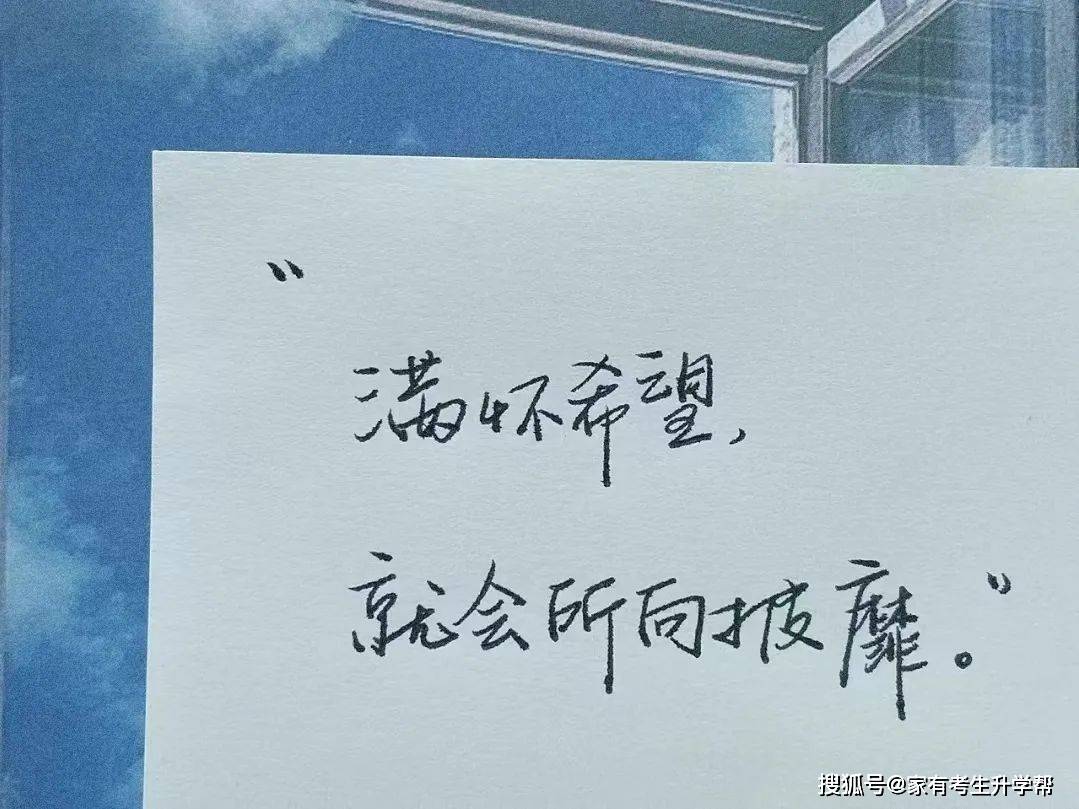 “
满怀希望，
就会所向披靡。”
搜狐号@家有考生升学帮